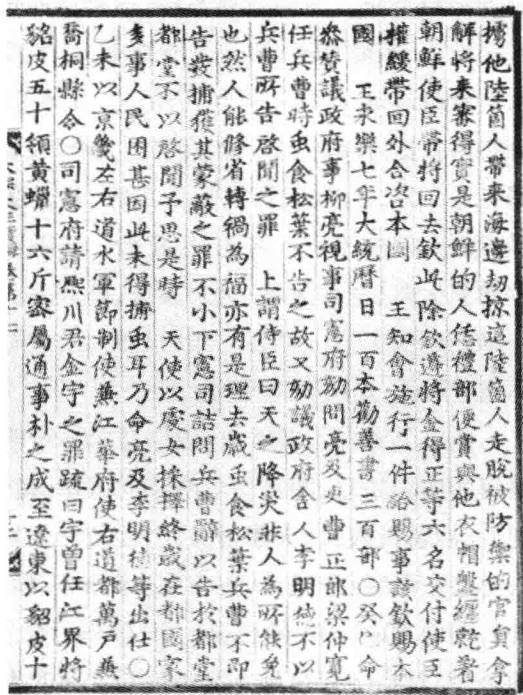 擄他陸箇人帶來海邊刼掠這陸箇人走脫被防禦的官員拿
解將來審得實是朝鮮的人恁禮部便賞與他衣帽盤纏就著
朝鮮使臣帶將回去欽此除欽遵將金得正等六名交付使臣
權緩帶回外合咨本國 王知會施行一件給賜事該欽賜本
國 王永樂七年大統曆日一百本勸善書三百部○癸巳命
叅贊議政府事柳亮視事司憲府劾問亮及吏曹正郎梁仲寬
任兵曹時虫食松葉不告之故又劾議政府舍人李明德不以
兵曹所告啓聞之罪 上謂侍臣曰天之降災非人為所能免
也然人能修省轉禍為福亦有是理去歲虫食松葉兵曹不即
告發捕獲其蒙蔽之罪不小下憲司詰問兵曹辭以告於都堂
都堂不以啓聞予思是時 天使以處女採擇終歲在都國家
多事人民困甚因此未得捕虫耳乃命亮及李明德等出仕○
乙未以京畿左右道水軍節制使兼江華府使右道都萬戶兼
喬桐縣令○司憲府請熙川君金宇之罪疏曰宇曾任江界將
貂皮五十領黃蠟十六斤密屬通事朴之成至遼東以貂皮十